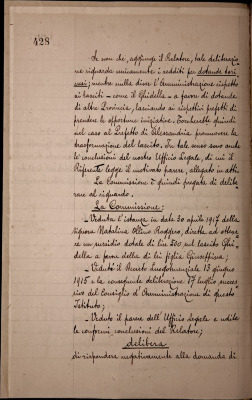 428
Se non che, aggiunge il Relatore, tale deliberazio
ne riguarda unicamente i redditi per dotande tori
nesi; mentre nulla dice l'Amministrazione rispetto
ai lasciti - come il Ghidella - a favore di dotande
di altre Provincie, lasciando ai rispettivi prefetti di
prendere le opportune iniziative. Toccherebbe quindi
nel caso al Prefetto di Alessandria promuovere la
trasformazione del lascito. In tale senso sono anche
le conclusioni del nostro Ufficio legale, di cui il
Riferente legge il motivato parere, allegato in atti.
La Commissione è quindi pregata di delibe
rare al riguardo.
La Commissione;
- Veduta l'istanza in data 30 aprile 1917 della
signora Natalina Ollino Roggero, diretta ad otten
ere un sussidio dotale di lire 500 sul lascito Ghi-
della a favore della di lei figlia Giuseffina;
- Veduto il Decreto Luogotenenziale 13 giugno
1915 e la conseguente deliberazione 17 luglio succes
sivo del Consiglio d'Amministrazione di questo
Istituto;
- Veduto il parere dell'Ufficio legale e udite
le conformi conclusioni del Relatore;
delibera
di rispondere negativamente alla domanda di